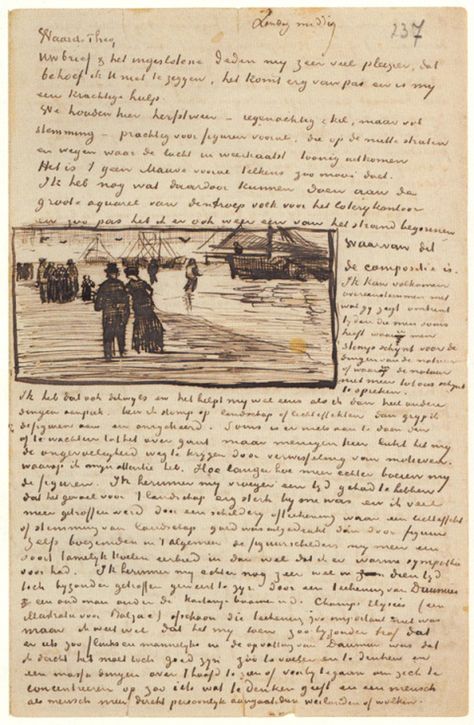 Zondag middag
237
Waarde Theo,
Uw brief & het ingeslotene deden mij zeer veel pleizier, dat
behoef ik U niet te zeggen, het komt erg van pas en is mij
een krachtige hulp.
We houden hier herfstweer – regenachtig & kil, maar vol
stemming – prachtig voor figuren vooral, die op de natte straten
en wegen waar de lucht in weerkaatst toonig uitkomen
Het is 't geen Mauve vooral telkens zoo mooi doet.
Ik heb nog wat daardoor kunnen doen aan de
groote aquarel van den troep volk voor het loterijkantoor
en zoo pas heb ik er ook weer een van het strand begonnen
waarvan dit
de compositie is.
Ik kan volkomen
overeenstemmen met
wat gij zegt omtrent
tijden die men soms
heeft waarin men
stomp schijnt voor de
dingen van de natuur
of waarin de natuur
niet meer tot ons schijnt
te spreken.
Ik heb dat ook dikwijls en het helpt mij wel eens als ik dan heel andere
dingen aanpak. Ben ik stomp op landschap of lichteffekten dan grijp ik
de figuren aan en omgekeerd. Soms is er niets aan te doen dan
af te wachten tot het over gaat maar menigen keer lukt het mij
de ongevoeligheid weg te krijgen door verwisseling van motieven
waarop ik mijn attentie heb. Hoe langer hoe meer echter boeien mij
de figuren. Ik herinner mij vroeger een tijd gehad te hebben
dat het gevoel voor 't landschap erg sterk bij me was en ik veel
meer getroffen werd door een schilderij of teekening waar een lichteffekt
of stemming van landschap goed was uitgedrukt dan door figuur
Zelfs boezemden in 't algemeen de figuurschilders mij meer een
soort tamelijk koelen eerbied in dan wel dat ik er warme sympathie
voor had. Ik herinner mij echter nog zeer wel in dien tijd
toch bijzonder getroffen geweest te zijn door een teekening van Daumier
een oud man onder de kastanjeboomen in de Champs Elysées (een
illustratie voor Balzac) ofschoon die teekening zoo important niet was
maar ik weet wel dat het mij toen zoo bijzonder trof dat
er iets zoo flinks en mannelijks in de opvatting van Daumier was dat
ik dacht het moet toch goed zijn zóó te voelen en te denken en
een massa dingen over 't hoofd te zien of voorbij te gaan om zich te
concentreren op zoo iets wat te denken geeft en een mensch
als mensch meer direkt persoonlijk aangaat dan weilanden of wolken.